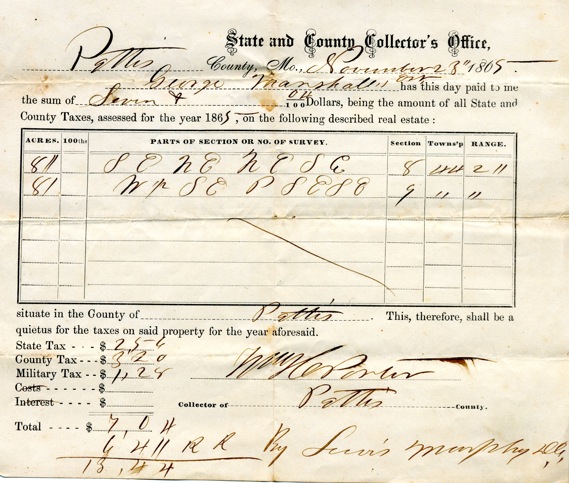 State and County Collector's Office,
Pettis County, Mo., November 23" 1865
George Marshall has this day paid to me
the sum of Seven & 04/100 Dollars, being the amount of all State and
County Taxes, assessed for the year 1865, on the following described real estate:
ACRES. 100ths PARTS OF SECTION OR NO. OF SURVEY. Section Towns'p RANGE.
S E N E N E S E 8 44 21
W P S E P S E S E 9 " "
situate in the County of Pettis This, therefore, shall be a
quietus for the taxes on said property for the year aforesaid.
State Tax - - - $ 2 5 6
County Tax - - - $ 3 2 0
Military Tax - - $ 1, 2 8
Costs - - - - $
Interest - - - - $
Wm H Porter
Collector of Pettis County.
Total - - - - $ 7, 0 4
6 4 " R R By Lewis Murphy D.C.
13, 4 4